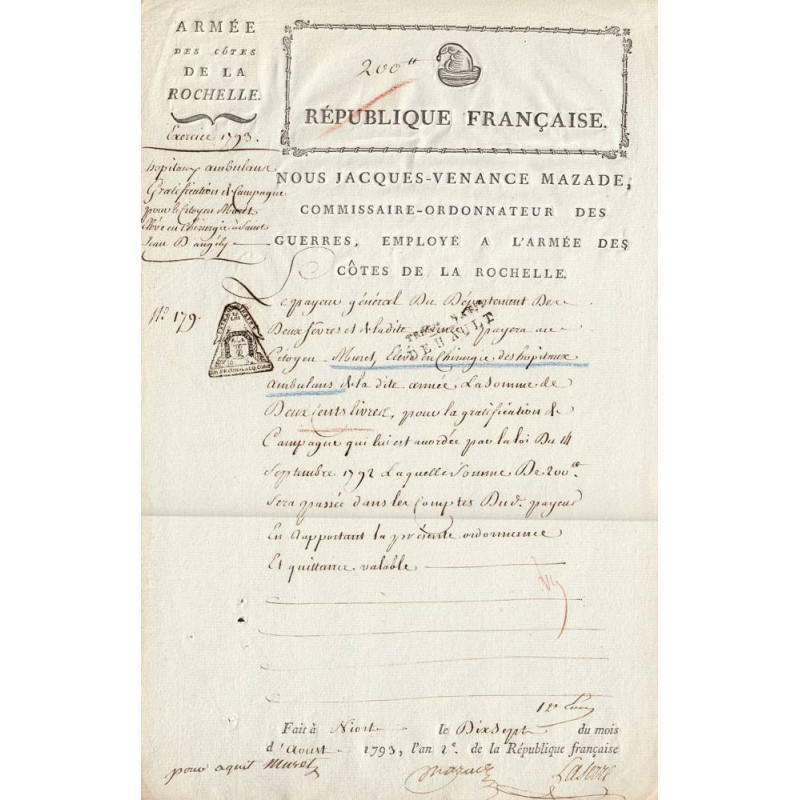 ARMÉE
DES CÔTES
DE LA
ROCHELLE.
Exercice 1793.
hopitaux ambulans
Gratification de Campagne
pour le Citoyen Muret
Elève en Chirurgie à Saint
Jean D'angely
N.º 179.
200tt
RÉPUBLIQUE FRANÇAISE.
NOUS JACQUES-VENANCE MAZADE,
COMMISSAIRE-ORDONNATEUR DES
GUERRES, EMPLOYÉ A L'ARMÉE DES
CÔTES DE LA ROCHELLE.
Le payeur général Du Département Des
Deux Sèvres et de ladite armée payera au
Citoyen Muret, Elève en Chirurgie des hopitaux
ambulans de la dite armée La Somme de
Deux Cents livres, pour la gratification de
Campagne qui lui est accordée par la loi Du 14
Septembre 1792 Laquelle Somme De 200tt
Sera passée dans les Comptes Dud. payeur
En Rapportant la présente ordonnance
Et quittance valable
Fait à Niort le Dix Sept du mois
d'Aoust 1793, l'an 2e. de la République française
pour aquit Muret